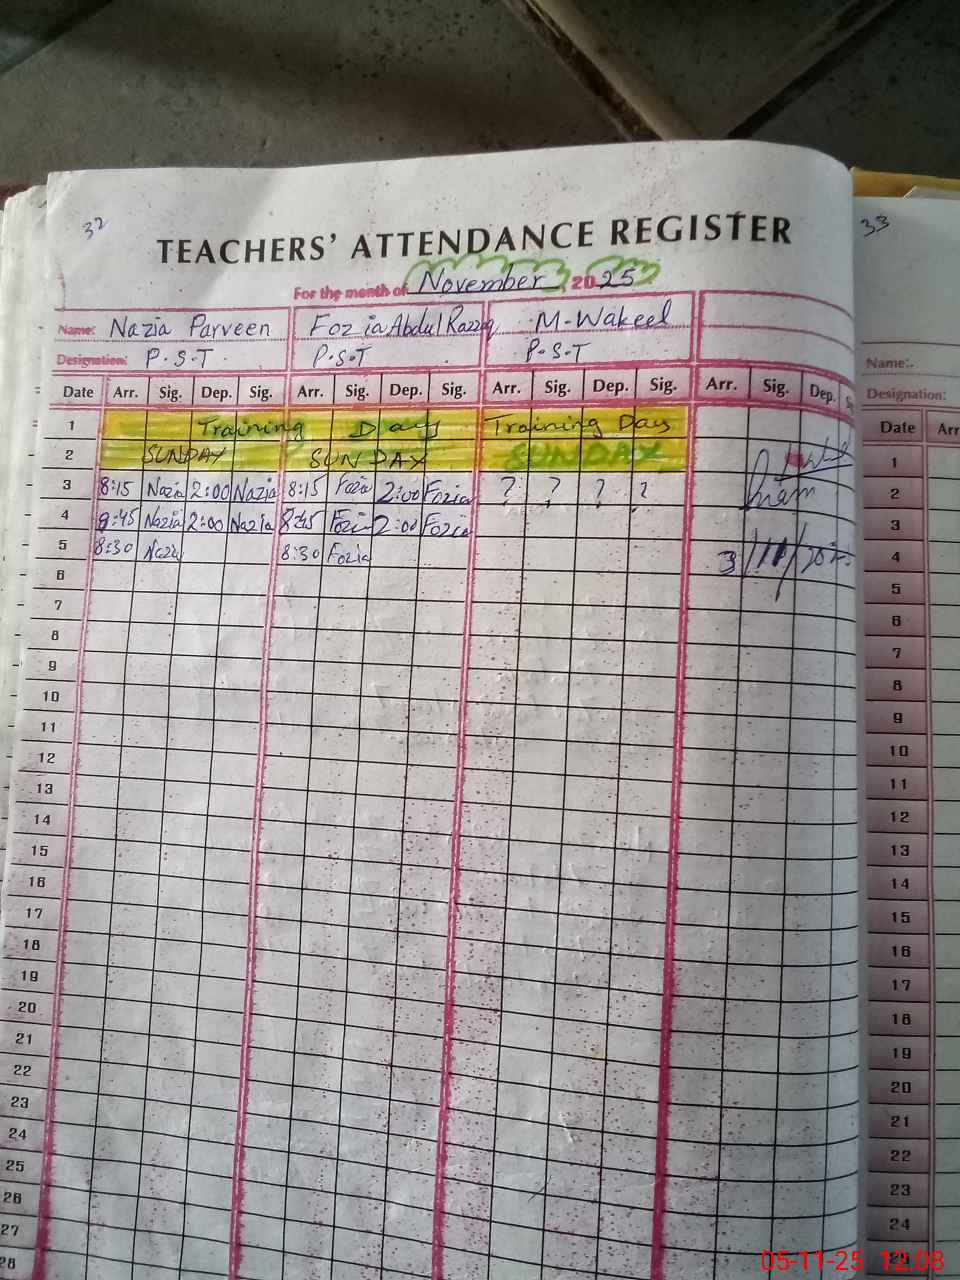 32
33
TEACHERS' ATTENDANCE REGISTER
For the month of November 2025
Name: Nazia Parveen Fozia Abdul Razzaq M-Wakeel
Designation: P.S.T P.S.T P.S.T
Date Arr. Sig. Dep. Sig. Arr. Sig. Dep. Sig. Arr. Sig. Dep. Sig. Arr. Sig. Dep.
1 Training Day Training Day
2 SUNDAY SUNDAY SUNDAY
3 8:15 Nazia 2:00 Nazia 8:15 Fozia 2:00 Fozia ? ? ? ?
4 Nazia 2:00 Nazia Fozia 2:00 Fozia
5 8:30 Nazia 8:30 Fozia
3/11/2025
6
7
8
9
10
11
12
13
14
15
16
17
18
19
20
21
22
23
24
25
26
27
28
Name:
Designation:
Date Arr
1
2
3
4
5
6
7
8
9
10
11
12
13
14
15
16
17
18
19
20
21
22
23
24
05-11-25 12:08